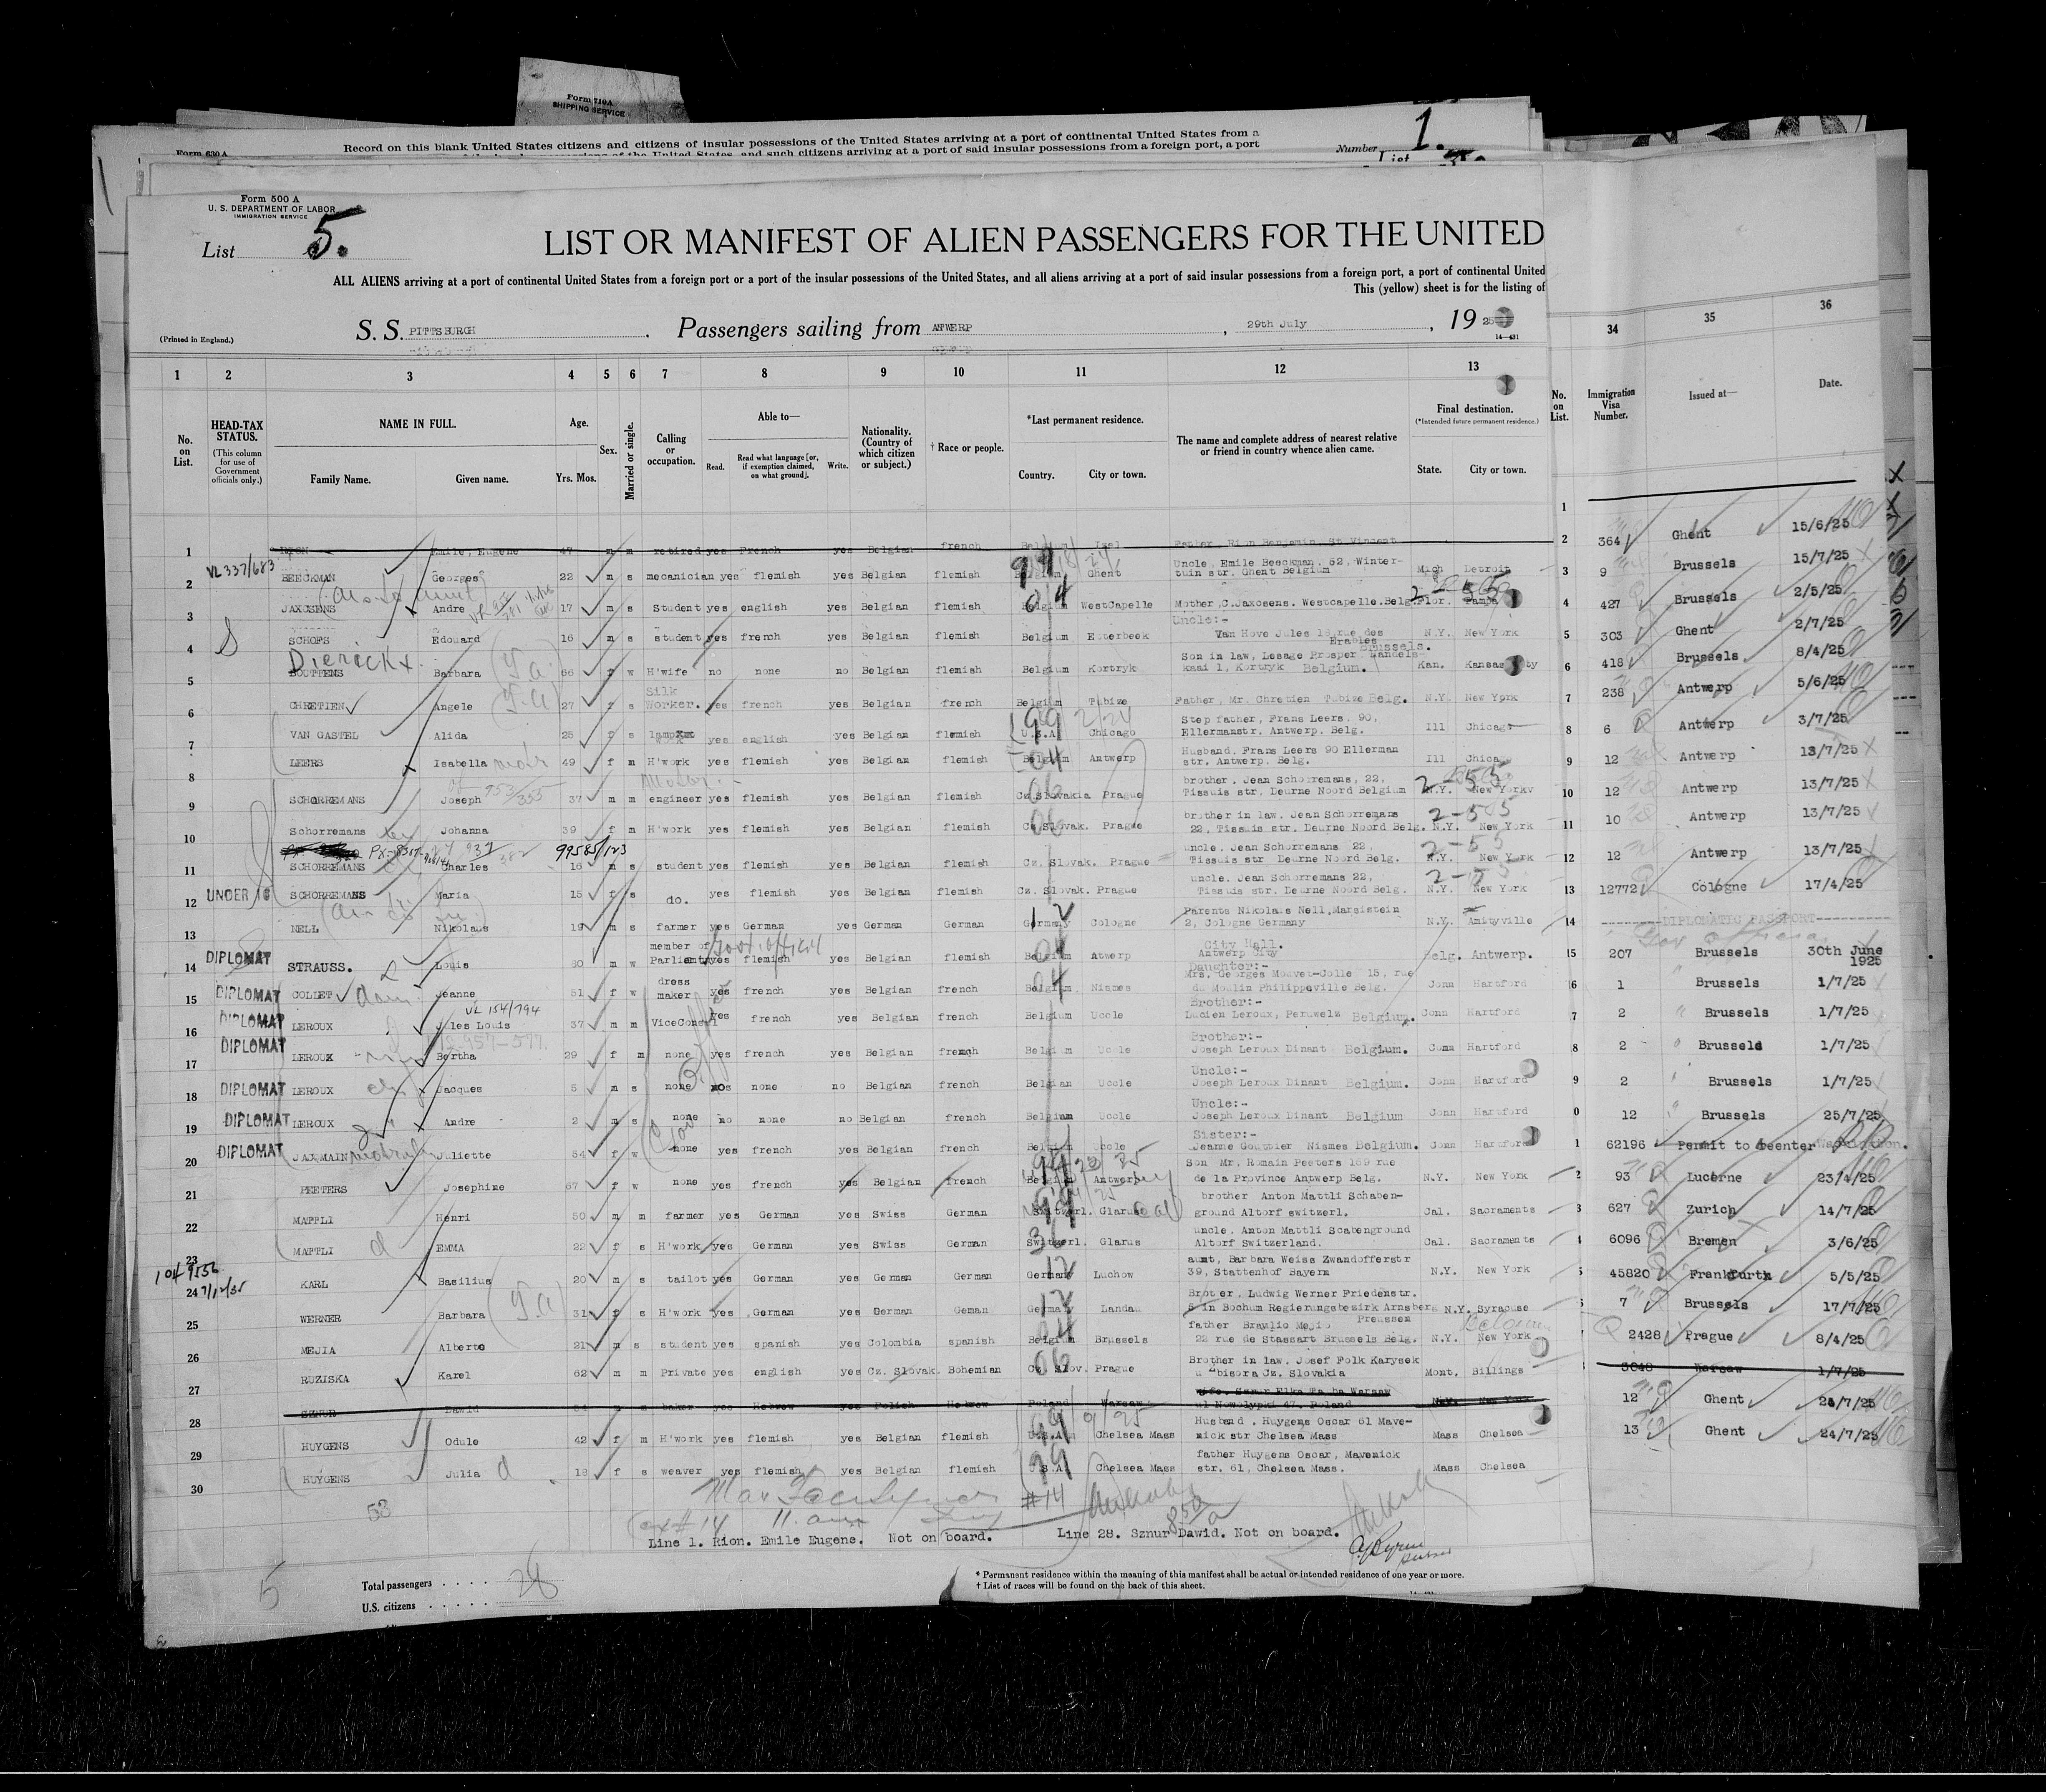 Form 710A
SHIPPING SERVICE
Form 630A
Record on this blank United States citizens and citizens of insular possessions of the United States arriving at a port of continental United States from a
Number 1.
Form 500 A
U. S. DEPARTMENT OF LABOR
IMMIGRATION SERVICE
List 5.
LIST OR MANIFEST OF ALIEN PASSENGERS FOR THE UNITED
ALL ALIENS arriving at a port of continental United States from a foreign port or a port of the insular possessions of the United States, and all aliens arriving at a port of said insular possessions from a foreign port, a port of continental United
This (yellow) sheet is for the listing of
(Printed in England.)
S. S. PITTSBURGH. Passengers sailing from ANTWERP, 29th July, 19 25
1 2 3 4 5 6 7 8 9 10 11 12 13 34 35 36
No. on List.
HEAD-TAX STATUS.
(This column for use of Government officials only.)
NAME IN FULL.
Family Name. Given name.
Age.
Yrs. Mos.
Sex.
Married or single.
Calling or occupation.
Able to—
Read. Read what language [or, if exemption claimed, on what ground]. Write.
Nationality. (Country of which citizen or subject.)
† Race or people.
*Last permanent residence.
Country. City or town.
The name and complete address of nearest relative or friend in country whence alien came.
Final destination.
(*Intended future permanent residence.)
State. City or town.
No. on List.
Immigration Visa Number.
Issued at—
Date.
1 RION Emile, Eugene 47 m m retired yes French yes Belgian french Belgium Father Rion Benjamin St Vincent
2 VL 337/683 BEECKMAN Georges 22 m s mecanician yes flemish yes Belgian flemish Belgium Ghent Uncle, Emile Beeckman. 62, Winter-tuin str. Ghent Belgium Mich Detroit
3 JAXOSENS Andre 17 m s Student yes english yes Belgian flemish Belgium WestCapelle Mother C.Jaxosens. Westcapelle.Belg. Flor. Tampa
4 SCHOFS Edouard 16 m s student yes french yes Belgian flemish Belgium Etterbeek Uncle:- Van Hove Jules 18 rue des Erables Brussels. N.Y. New York
Dierickx.
5 BOUTTENS Barbara 66 f w H'wife no none no Belgian flemish Belgium Kortryk Son in law, Lesage Prosper Handels-kaai 1, Kortryk Belgium. Kan. Kansas City
6 CHRETIEN Angele 27 f s Silk Worker. yes french yes Belgian french Belgium Tubize Father, Mr. Chretien Tubize Belg. N.Y. New York
7 VAN GASTEL Alida 25 f s yes english yes Belgian flemish U.S.A Chicago Step father, Frans Leers. 90, Ellermanstr. Antwerp. Belg. Ill Chicago
8 LEERS Isabella 49 f m H'work yes flemish yes Belgian flemish Belgium Antwerp Husband. Frans Leers 90 Ellerman str. Antwerp. Belg. Ill Chicago
9 SCHORREMANS Joseph 37 m m engineer yes flemish yes Belgian flemish Cz.Slovakia Prague brother. Jean Schorremans, 22, Tissuis str. Deurne Noord Belgium N.Y. New York
10 Schorremans Johanna 39 f m H'work yes flemish yes Belgian flemish Cz.Slovak. Prague brother in law. Jean Schorremans 22, Tissuis str. Deurne Noord Belg. N.Y. New York
99585/123
11 SCHORREMANS Charles 16 m s student yes flemish yes Belgian flemish Cz. Slovak. Prague uncle. Jean Schorremans 22, Tissuis str Deurne Noord Belg. N.Y. New York
12 UNDER 16 SCHORREMANS Maria 15 f s do. yes flemish yes Belgian flemish Cz. Slovak. Prague uncle. Jean Schorremans 22, Tissuis str. Deurne Noord Belg. N.Y. New York
13 NELL Nikolaus 19 m s farmer yes German yes German German Germany Cologne Parents Nikolaus Nell, Marsistein 2, Cologne Germany N.Y. Amityville
14 DIPLOMAT STRAUSS. Louis 80 m w member of Parliament yes flemish yes Belgian flemish Belgium Atwerp City Hall. Antwerp City Belg. Antwerp.
15 DIPLOMAT COLLET Jeanne 51 f w dress maker yes french yes Belgian french Belgium Niames Daughter:- Mrs. Georges Mouvet-Colle 15, rue du Moulin Philippeville Belg. Conn Hartford
VL 154/794
16 DIPLOMAT LEROUX Jules Louis 37 m m ViceConsul yes french yes Belgian french Belgium Uccle Brother:- Lucien Leroux, Peruwelz Belgium. Conn Hartford
17 DIPLOMAT LEROUX Bertha 29 f m none yes french yes Belgian french Belgium Uccle Brother:- Joseph Leroux Dinant Belgium. Conn Hartford
18 DIPLOMAT LEROUX Jacques 5 m s none no none no Belgian french Belgian Uccle Uncle:- Joseph Leroux Dinant Belgium. Conn Hartford
19 DIPLOMAT LEROUX Andre 2 m s none no none no Belgian french Belgium Uccle Uncle:- Joseph Leroux Dinant Belgium Conn Hartford
20 DIPLOMAT JAXMAIN Juliette 54 f w none yes french yes Belgian french Belgium Uccle Sister:- Jeanne Gouthier Niames Belgium. Conn Hartford
21 PEETERS Josephine 67 f w none yes french yes Belgian french Belgium Antwerp Son Mr. Romain Peeters 189 rue de la Province Antwerp Belg. N.Y. New York
22 MATTLI Henri 50 m m farmer yes German yes Swiss German Switzerl. Glarus brother Anton Mattli Schaben-ground Altorf switzerl. Cal. Sacramento
23 MATTLI EMMA 22 f s H'work yes German yes Swiss German Switzerl. Glarus uncle. Anton Mattli Scabenground Altorf Switzerland. Cal. Sacramento
24 KARL Basilius 20 m s tailor yes German yes German German Germany Luchow aunt, Barbara Weiss Zwandofferstr 39, Stattenhof Bayern N.Y. New York
25 WERNER Barbara 31 f s H'work yes German yes German Geman Germany Landau Brother, Ludwig Werner Friedenstr. 5 in Bochum Regierungsbezirk Arnsberg Preussen N.Y. Syracuse
26 MEJIA Alberto 21 m s student yes spanish yes Colombia spanish Belgium Brussels father Braulio Mejio 22 rue de Stassart Brussels Belg. N.Y. New York
27 RUZISKA Karel 62 m m Private yes english yes Cz. Slovak. Bohemian Cz. Slov. Prague Brother in law. Josef Folk Karysek u bisora Cz. Slovakia Mont. Billings
28 SZNUR Dawid m m baker yes Hebrew yes Polish Hebrew Poland Warsaw wife. Sznur Elka Warsaw ul Nowolypki 47. Poland N.Y. New York
29 HUYGENS Odule 42 f m H'work yes flemish yes Belgian flemish U.S.A. Chelsea Mass Husband. Huygens Oscar 61 Mave-nick str Chelsea Mass Mass Chelsea
30 HUYGENS Julia 18 f s weaver yes flemish yes Belgian flemish U.S.A. Chelsea Mass father Huygens Oscar, Mavenick str. 61, Chelsea Mass. Mass Chelsea
1
2 364 Ghent 15/6/25
3 9 Brussels 15/7/25
4 427 Brussels 2/5/25
5 303 Ghent 2/7/25
6 418 Brussels 8/4/25
7 238 Antwerp 5/6/25
8 6 Antwerp 3/7/25
9 12 Antwerp 13/7/25
10 12 Antwerp 13/7/25
11 10 Antwerp 13/7/25
12 12 Antwerp 13/7/25
13 12772 Cologne 17/4/25
14 DIPLOMATIC PASSPORT
15 207 Brussels 30th June 1925
6 1 Brussels 1/7/25
7 2 Brussels 1/7/25
8 2 Brussels 1/7/25
9 2 Brussels 1/7/25
0 12 Brussels 25/7/25
1 62196 Permit to reenter Washington.
2 93 Lucerne 23/4/25
3 627 Zurich 14/7/25
4 6096 Bremen 3/6/25
5 45820 Frankfurth 5/5/25
7 Brussels 17/7/25
2428 Prague 8/4/25
3048 Warsaw 1/7/25
12 Ghent 24/7/25
13 Ghent 24/7/25
53
#14
Line 1. Rion. Emile Eugene. Not on board.
Line 28. Sznur Dawid. Not on board.
5
Total passengers 28
U.S. citizens
* Permanent residence within the meaning of this manifest shall be actual or intended residence of one year or more.
† List of races will be found on the back of this sheet.